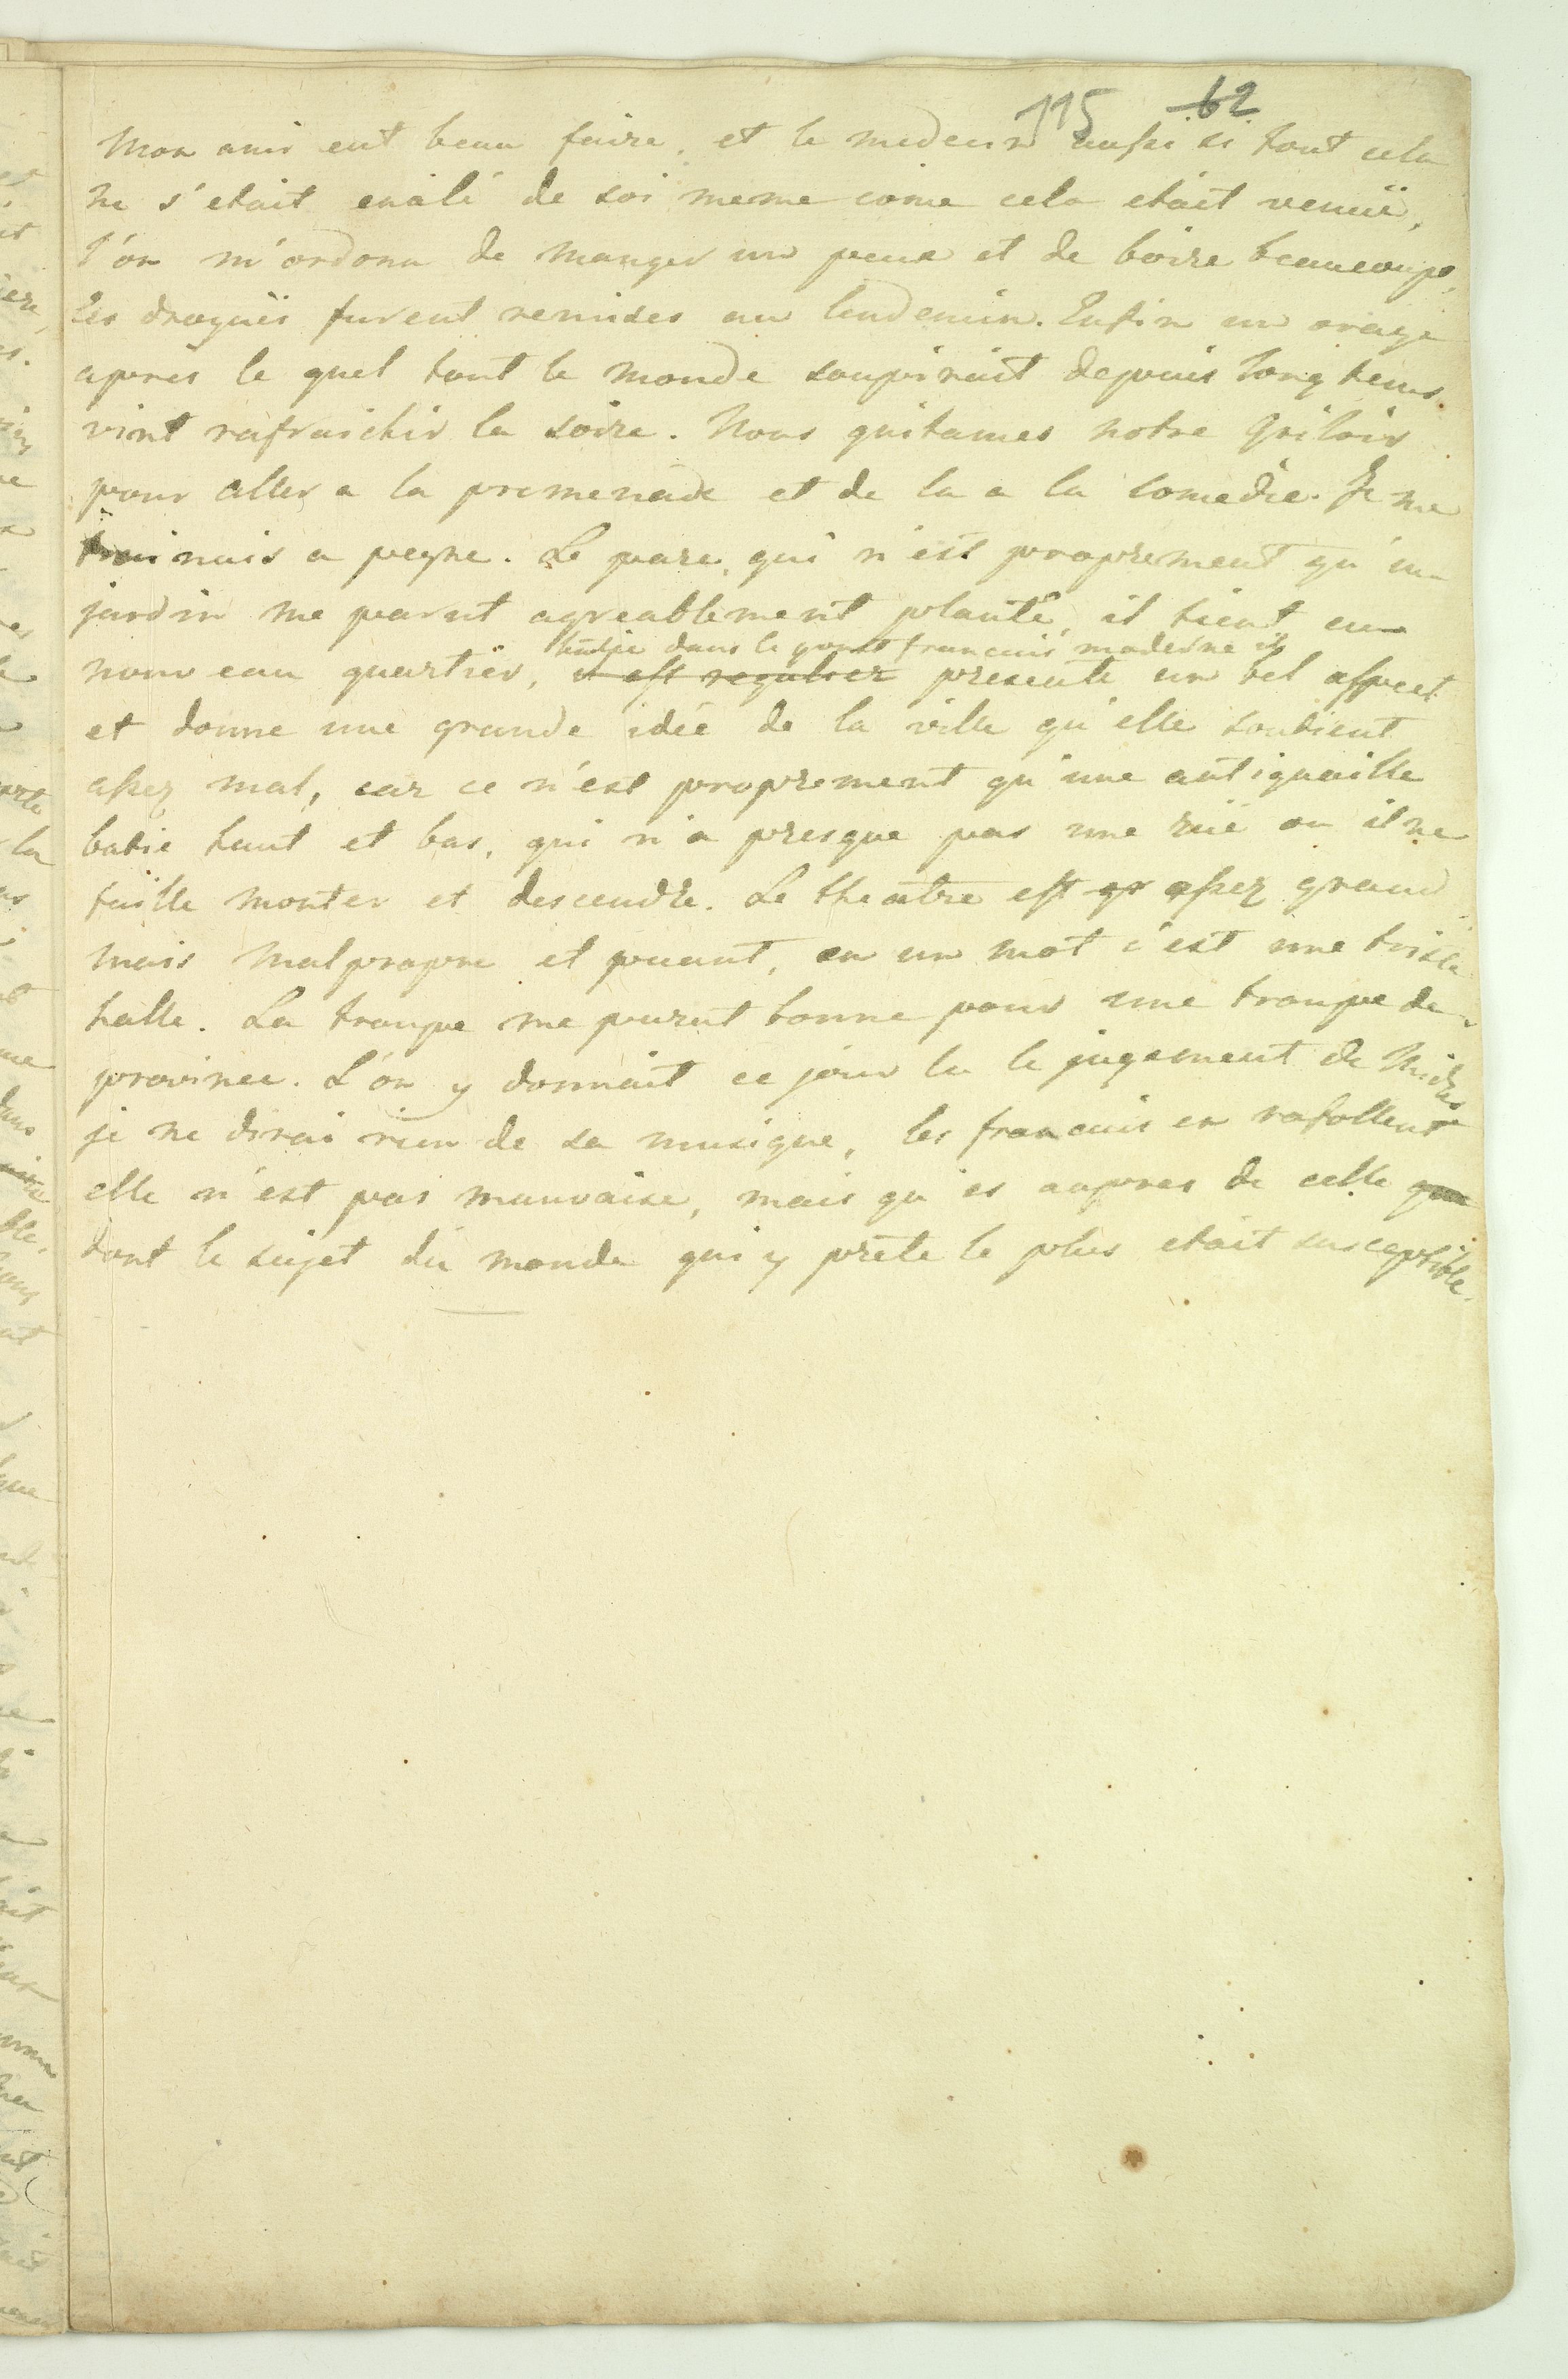 115 62
Mon ami eut beau faire, et le medecin aussi si tout cela
ne s'etait exalé de soi meme come cela etait venuë,
l'on m'ordona de manger un peux et de boire beaucoups,
les droguës furent remises au lendemin. Enfin un orage
apres le quel tout le monde soupirait depuis long tems
vint rafraichir la soire. Nous quitames notre Griloir
pour aller a la promenade et de la a la Comedie. Je me
trainais a peyne. Le parc, qui n'est proprement qu'un
jardin me parut agreablement planté, il tient au
batje dans le goust francais moderne il
nouveau quartier, il est regulier presente un bel aspect
et donne une grande idée de la ville qu'elle soutient
assez mal, car ce n'est proprement qu'une antiquaille
batie haut et bas, qui n'a presque pas une ruë ou il ne
faille monter et descendre. Le theatre est gr assez grand
mais malpropre et puant, en un mot c'est une triste
halle. La troupe me parut bonne pour une troupe de
province. L'on y donnait ce jour la le jugement de Midas
je ne dirai rien de sa musique, les francais en rafollent
elle n'est pas mauvaise, mais qu'es aupres de celle que
dont le sujet du monde qui y prete le plus etait susceptible.